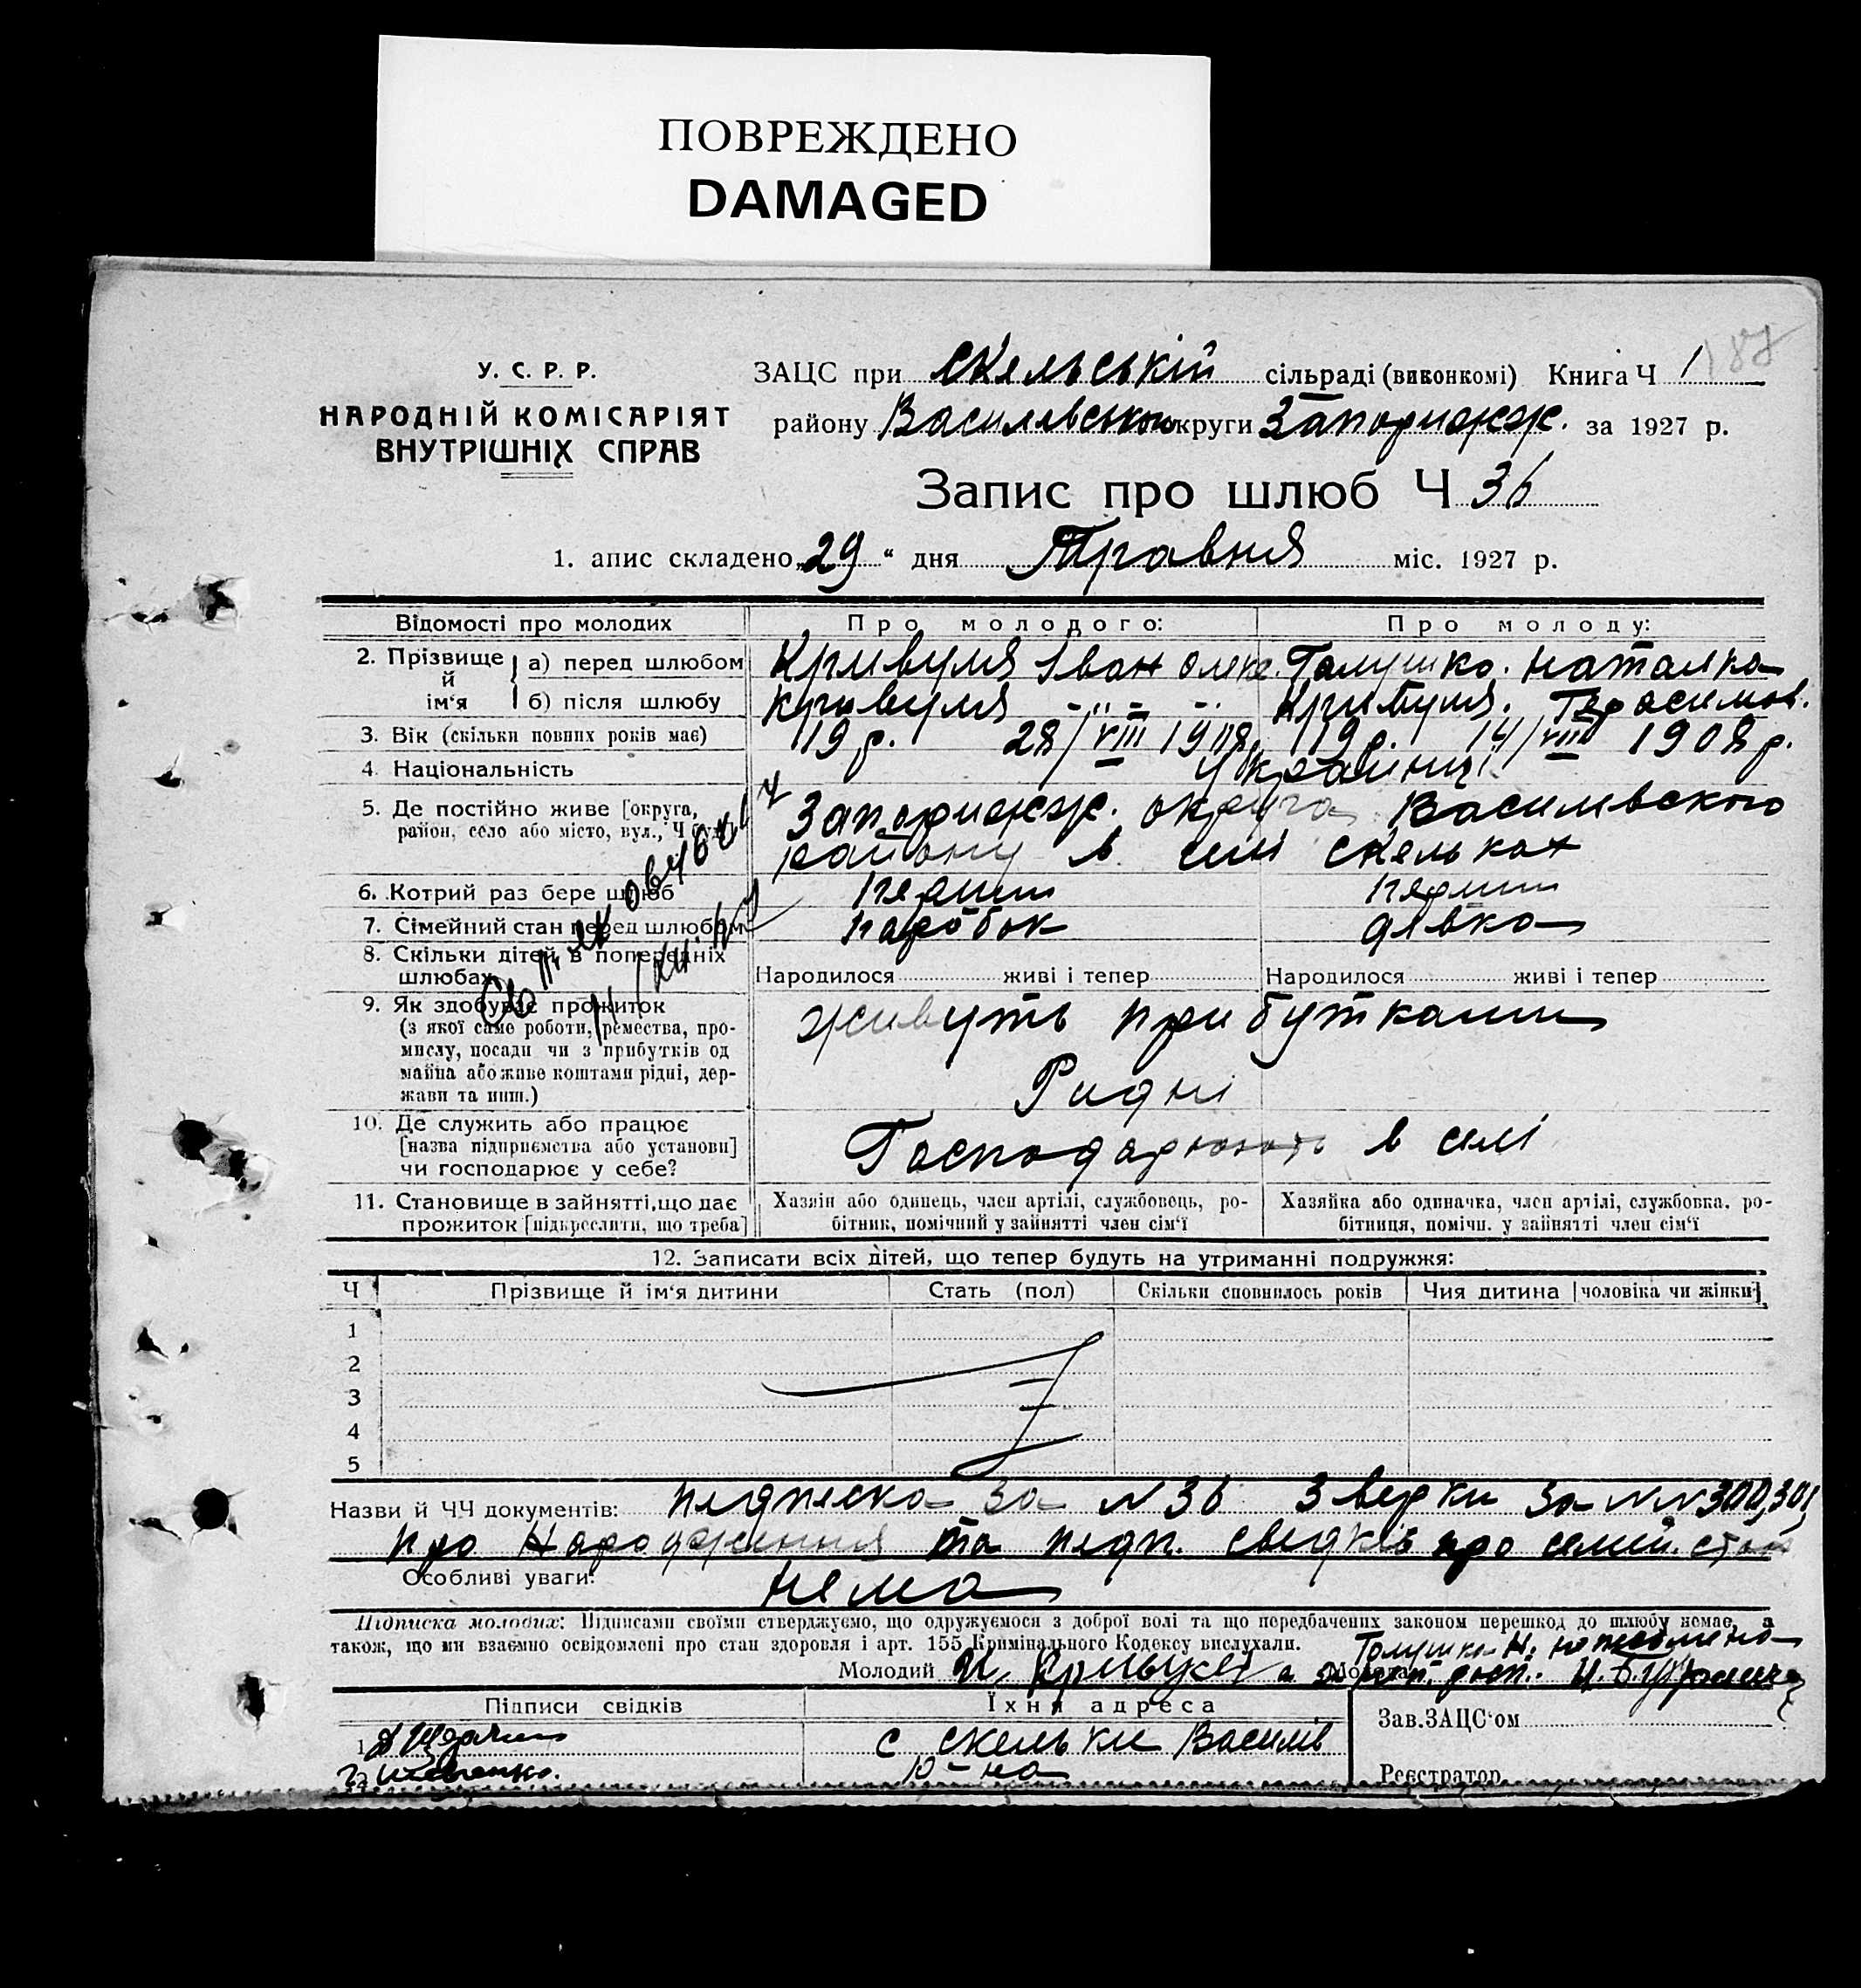 ПОВРЕЖДЕНО
DAMAGED
У. С. Р. Р.
НАРОДНІЙ КОМІСАРІЯТ
ВНУТРІШНІХ СПРАВ
ЗАЦС при Скельській сільраді (виконкомі) Книга Ч 1
району Василівського округи Запорижж. за 1927 р.
Запис про шлюб Ч 36
1. апис складено „29“ дня Травня міс. 1927 р.
Відомості про молодих Про молодого: Про молоду:
2. Прізвище й ім'я
а) перед шлюбом Кривуля Іван Олекс. Галушко. Наталка
б) після шлюбу Кривуля -"- -"- Кривуля. Герасимов.
3. Вік (скільки повних років має) 19 р. 28/VIII 19 р. 14/VIII 1908 р.
4. Національність Україниці
5. Де постійно живе [округа, район, село або місто, вул., Ч буд.
Запорижж. округа Василивского
району в селі Скельках
6. Котрий раз бере шлюб перший перший
7. Сімейний стан перед шлюбом паробок дівка
8. Скільки дітей в попередніх шлюбах Народилося живі і тепер Народилося живі і тепер
9. Як здобуває прожиток
(з якої саме роботи, ремества, про-
мислу, посади чи з прибутків од
майна або живе коштами рідні, дер-
жави та инш.)
живуть прибутками
Ридні
10. Де служить або працює
[назва підприємства або установи]
чи господарює у себе?
Господарюють в селі
11. Становище в зайнятті, що дає
прожиток [підкреслити, що треба]
Хазяїн або одинець, член артілі, службовець, ро-
бітник, помічний у зайнятті член сім'ї
Хазяйка або одиначка, член артілі, службовка, ро-
бітниця, помічн. у зайнятті член сім'ї
12. Записати всіх дітей, що тепер будуть на утриманні подружжя:
Ч Прізвище й ім'я дитини Стать (пол) Скільки сповнилось років Чия дитина [чоловіка чи жінки]
1
2
3
4
5
Назви й ЧЧ документів: підписка за N 36 Зверки за NN 300, 301,
про Народження та підп. свидків про семей. стан
Особливі уваги: нема
Підписка молодих: Підписами своїми стверджуємо, що одружуємося з доброї волі та що передбачених законом перешкод до шлюбу немає, а
також, що ми взаємно освідомлені про стан здоровля і арт. 155 Кримінального Кодексу вислухали.
Галушко Н. неписьмена
Молодий И. Кривуля а Молода
Підписи свідків Їхня адреса Зав.ЗАЦС'ом
1 с Скельки Василів
2 р-на
Реєстратор